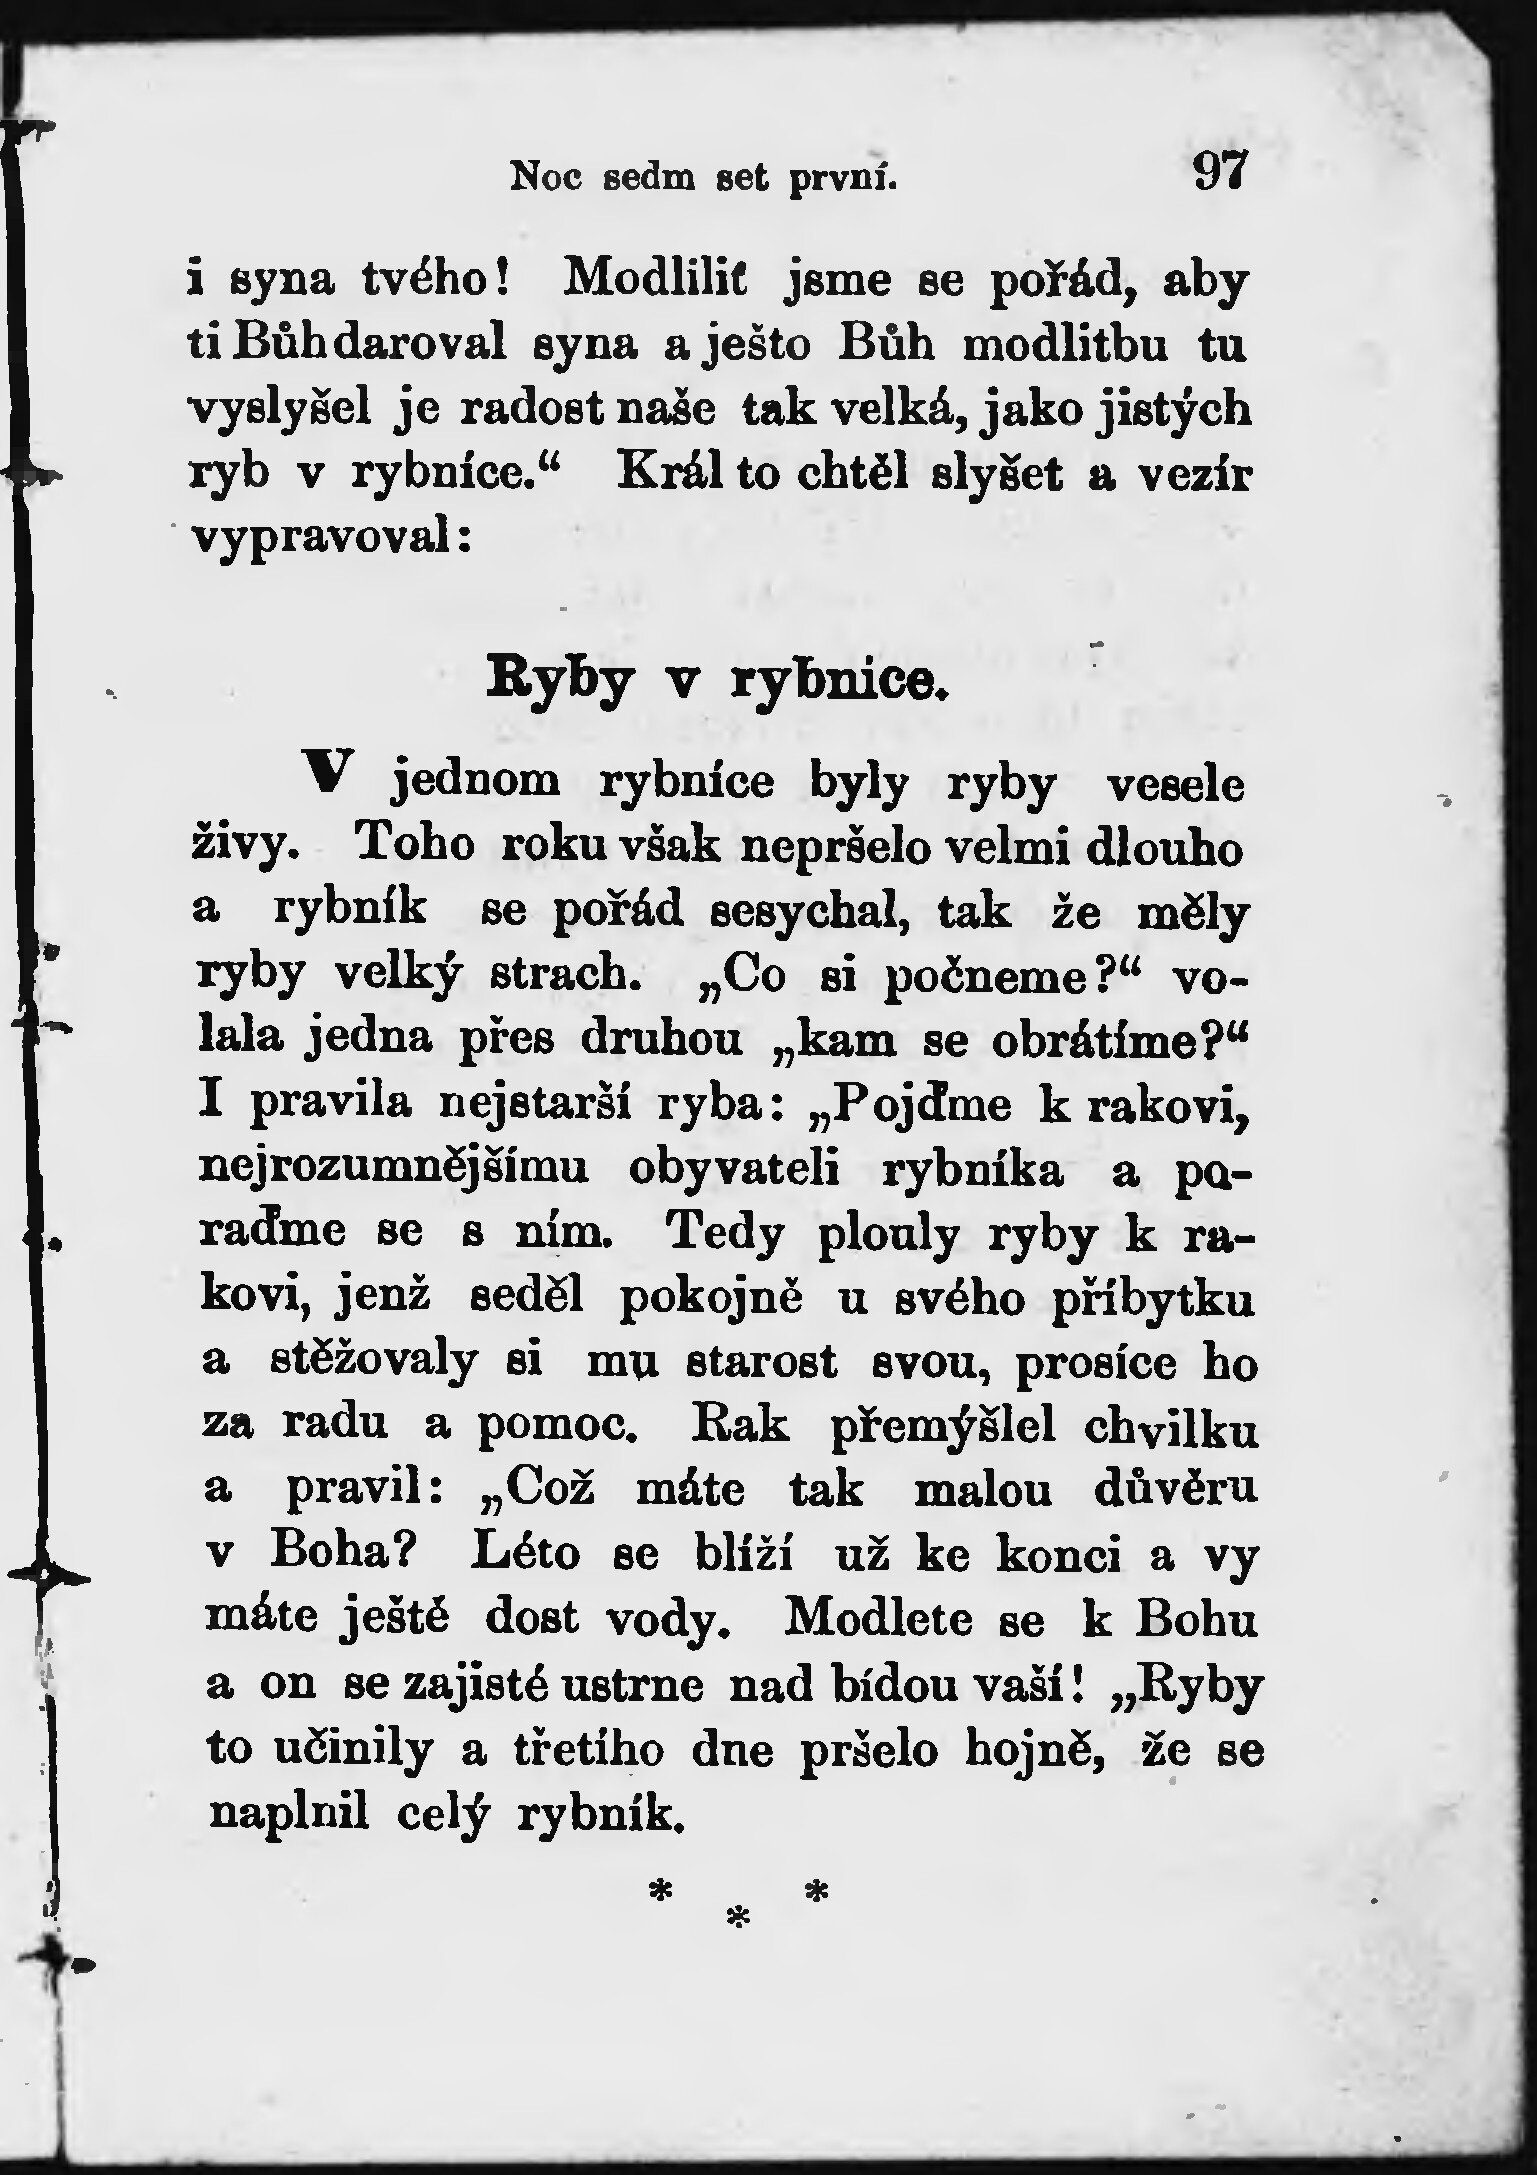 Noc sedm set první. 97
i syna tvého! Modliliť jsme se pořád, aby
ti Bůh daroval syna a ješto Bůh modlitbu tu
vyslyšel je radost naše tak velká, jako jistých
ryb v rybníce.“ Král to chtěl slyšet a vezír
vypravoval:
Ryby v rybnice.
V jednom rybníce byly ryby vesele
živy. Toho roku však nepršelo velmi dlouho
a rybník se pořád sesychal, tak že měly
ryby velký strach. „Co si počneme?“ vo-
lala jedna přes druhou „kam se obrátíme?“
I pravila nejstarší ryba: „Pojďme k rakovi,
nejrozumnějšímu obyvateli rybníka a po-
raďme se s ním. Tedy plouly ryby k ra-
kovi, jenž seděl pokojně u svého příbytku
a stěžovaly si mu starost svou, prosíce ho
za radu a pomoc. Rak přemýšlel chvilku
a pravil: „Což máte tak malou důvěru
v Boha? Léto se blíží už ke konci a vy
máte ještě dost vody. Modlete se k Bohu
a on se zajisté ustrne nad bídou vaší! „Ryby
to učinily a třetího dne pršelo hojně, že se
naplnil celý rybník.
* * *